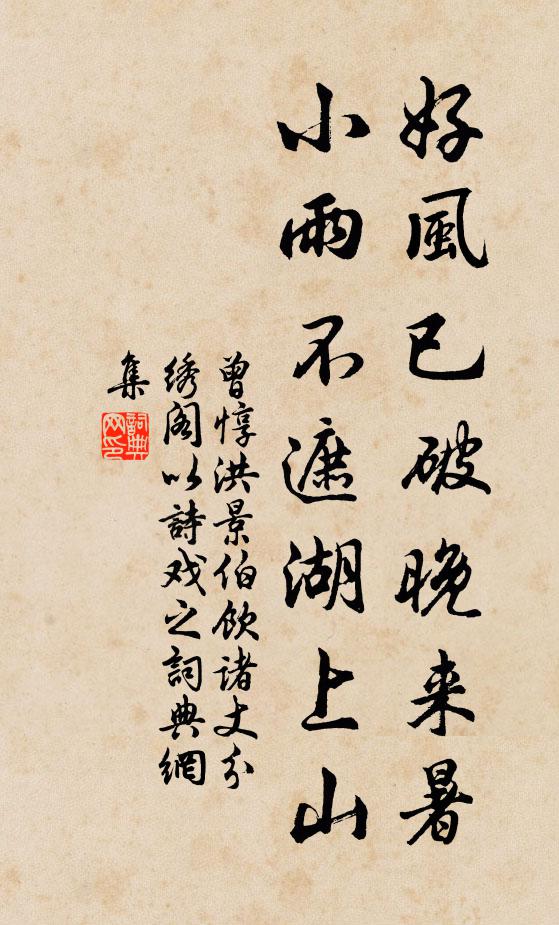 好風已破晚来暑
小雨不遮湖上山
曾惇洪景伯飲諸丈分
绣阁以詩戏之詞典網
集
詞典
网印